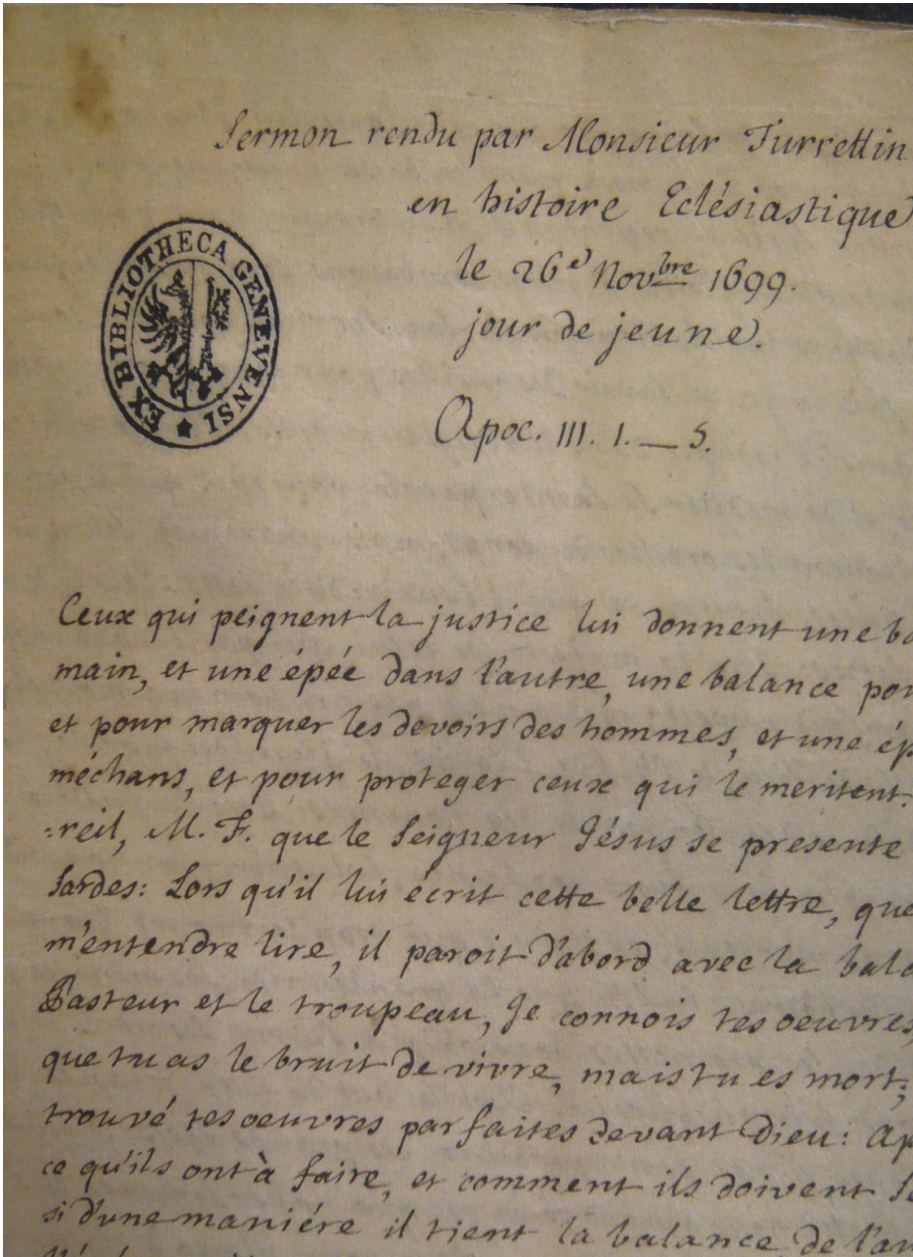 Sermon rendu par Monsieur Turrettin
en histoire Eclésiastique
le 26e Novbre 1699.
jour de jeune.
EX BIBLIOTHECA GENEVENSI
Apoc. III. 1. — 5.
Ceux qui peignent la justice lui donnent une
main, et une épée dans l'autre, une balance
et pour marquer les devoirs des hommes, et une
méchans, et pour proteger ceux qui le meritent.
:reil, M. F. que le Seigneur Jésus se presente
Sardes: Lors qu'il lui écrit cette belle lettre,
m'entendre lire, il paroit d'abord avec la
Pasteur et le troupeau, Je connois tes oeuvres,
que tu as le bruit de vivre, mais tu es mort;
trouvé tes oeuvres parfaites devant Dieu:
ce qu'ils ont à faire, et comment ils doivent
si d'une maniére il tient la balance de